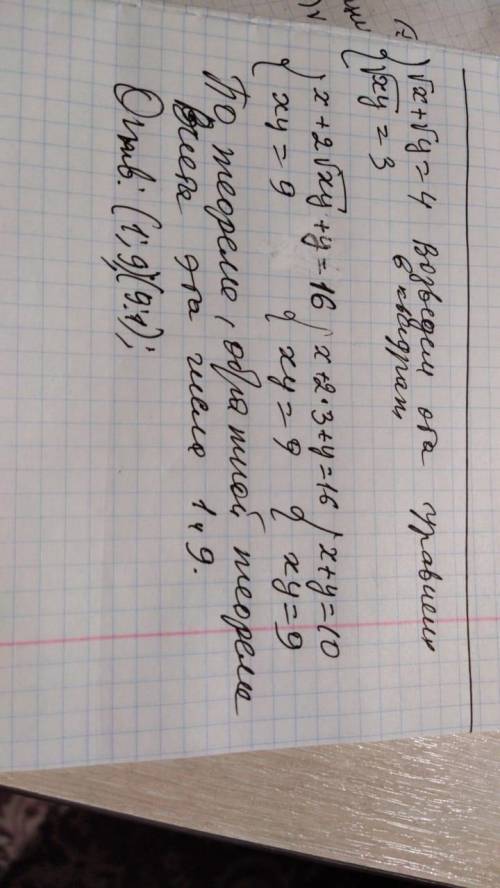 {√x+√y=4 возведем оба уравнен
{√xy = 3 в квадрат,
{x+2√xy+y=16 {x+2·3+y=16 {x+y=10
{xy=9 {xy=9 {xy=9
По теореме, обратной теореме
Виета эта числа 1 и 9.
Ответ: (1;9)(9;1);